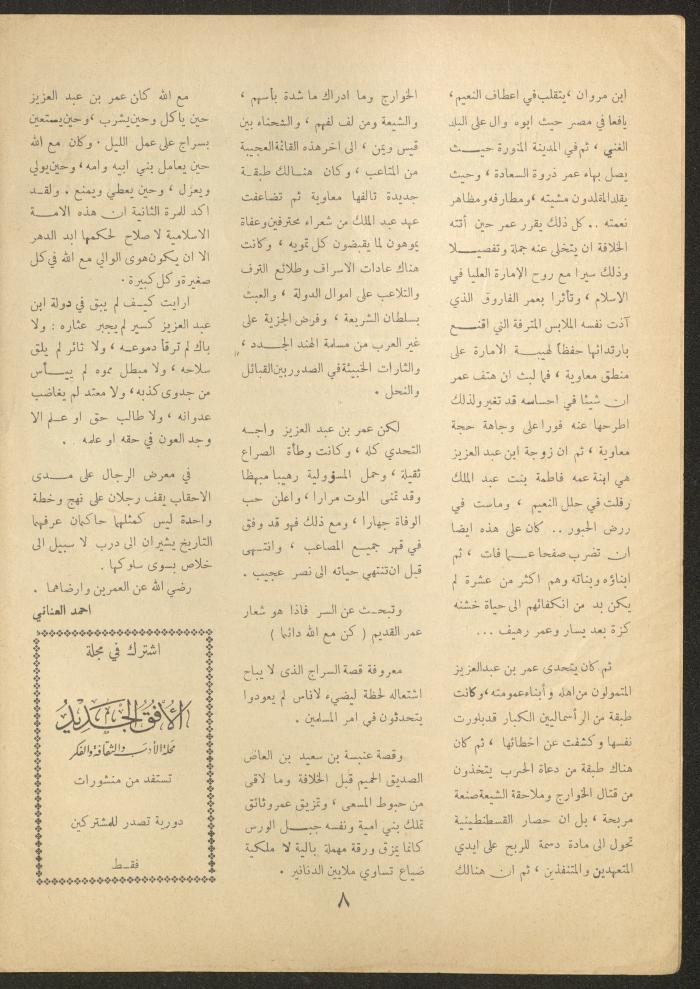 ابن مروان ، يتقلب في اعطاف النعيم ،
يافعا في مصر حيث ابوه وال على البلد
الغني ، ثم في المدينة المنورة حيث
يصل بهاء عمر ذروة السعادة ، وحيث
يقلد المقلدون مشيته ، ومطارفه ومظاهر
نعمته .. كل ذلك يقرر عمر حين أتته
الخلافة ان يتخلى عنه جملة وتفصيلا
وذلك سيرا مع روح الإمارة العليا في
الاسلام ، وتأثرا بعمر الفاروق الذي
آذت نفسه الملابس المترفة التي اقنع
بارتدائها حفظاً لهيبة الامارة على
منطق معاوية ، فما لبث ان هتف عمر
ان شيئا في احساسه قد تغير ولذلك
اطرحها عنه فورا على وجاهة حجة
معاوية ، ثم ان زوجة ابن عبد العزيز
هي ابنة عمه فاطمة بنت عبد الملك
رفلت في حلل النعيم ، وماست في
ررض الحبور .. كان على هذه ايضا
ان تضرب صفحا عما فات ، ثم
ابناؤه وبناته وهم اكثر من عشرة لم
يكن بد من انكفائهم الى حياة خشنه
كزة بعد يسار وعمر رهيف ...
ثم كان يتحدى عمر بن عبد العزيز
المتمولون من اهله وأبناء عمومته ، وكانت
طبقة من الرأسماليين الكبار قد بلورت
نفسها وكشفت عن اخطائها ، ثم كان
هناك طبقة من دعاة الحرب يتخذون
من قتال الخوارج وملاحقة الشيعة صنعة
مربحة ، بل ان حصار القسطنطينية
تحول الى مادة دسمة للربح على ايدي
المتعهدين والمتنفذين ، ثم ان هنالك
الخوارج وما ادراك ما شدة بأسهم ،
والشيعة ومن لف لفهم ، والشحناء بين
قيس ويمن ، الى اخر هذه القائمة العجيبة
من المتاعب ، وكان هنالك طبقة
جديدة تالفها معاوية ثم تضاعفت
عهد عبد الملك من شعراء محترفين وعفاة
يموهون لما يقبضون كل تمويه ، وكانت
هناك عادات الاسراف وطلائع الترف
والتلاعب على اموال الدولة ، والعبث
بسلطان الشريعة ، وفرض الجزية على
غير العرب من مسلمة الهند الجدد ،
والثارات الخبيثة في الصدور بين القبائل
والنحل .
لكن عمر بن عبد العزيز واجه
التحدي كله ، وكانت وطأة الصراع
ثقيلة ، وحمل المسؤولية رهيبا مبهظا
وقد تمنى الموت مرارا ، واعلن حب
الوفاة جهارا ، ومع ذلك فهو قد وفق
في قهر جميع المصاعب ، وانتهى
قبل ان تنتهي حياته الى نصر عجيب .
وتبحث عن السر فاذا هو شعار
عمر القديم ( كن مع الله دائما )
معروفة قصة السراج الذى لا يباح
اشتعاله لحظة ليضيء لاناس لم يعودوا
يتحدثون في امر المسلمين .
وقصة عنبسة بن سعيد بن العاص
الصديق الحميم قبل الخلافة وما لاقى
من حبوط المسعى ، وتمزيق عمر وثائق
تملك بني امية ونفسه جبل الورس
كانما يمزق ورقة مهملة بالية لا ملكية
ضياع تساوي ملايين الدنانير .
مع الله كان عمر بن عبد العزيز
حين ياكل وحين يشرب ، وحين يستعين
بسراج على عمل الليل . وكان مع الله
حين يعامل بني ابيه وامه ، وحين يولي
ويعزل ، وحين يعطي ويمنع . ولقد
اكد للمرة الثانية ان هذه الامة
الاسلامية لا صلاح لحكمها ابد الدهر
الا ان يكون هوى الوالي مع الله في كل
صغيرة وكل كبيرة .
ارايت كيف لم يبق في دولة ابن
عبد العزيز كسير لم يجبر عثاره : ولا
باك لم ترقأ دموعه ، ولا ثائر لم يلق
سلاحه ، ولا مبطل مموه لم ييأس
من جدوى كذبه ، ولا معتد لم يغاضب
عدوانه ، ولا طالب حق او علم الا
وجد العون في حقه او علمه .
في معرض الرجال على مدى
الاحقاب يقف رجلان على نهج وخطة
واحدة ليس كمثلهما حاكمان عرفهما
التاريخ يشيران الى درب لا سبيل الى
خلاص بسوى سلوكها .
رضي الله عن العمرين وارضاهما .
احمد العناني
اشترك في مجلة
الأفق الجديد
مجلة الأدب والثقافة والفكر
تستفد من منشورات
دورية تصدر للمشتركين
فقط
٨